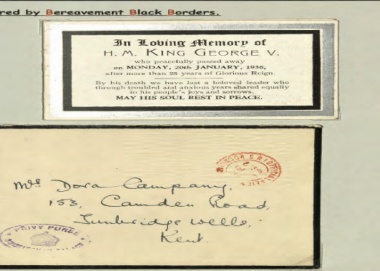 red by Bereavement Black Borders.
In Loving Memory of
H. M. KING GEORGE V.
who peacefully passed away
on MONDAY, 20th JANUARY, 1936,
after more than 25 years of Glorious Reign.
By his death we have lost a beloved leader who
through troubled and anxious years shared equally
in his people's joys and sorrows.
MAY HIS SOUL REST IN PEACE.
Dora Company,
158, Camden Road,
Tunbridge Wells.
Kent.
PRIVY PURSE